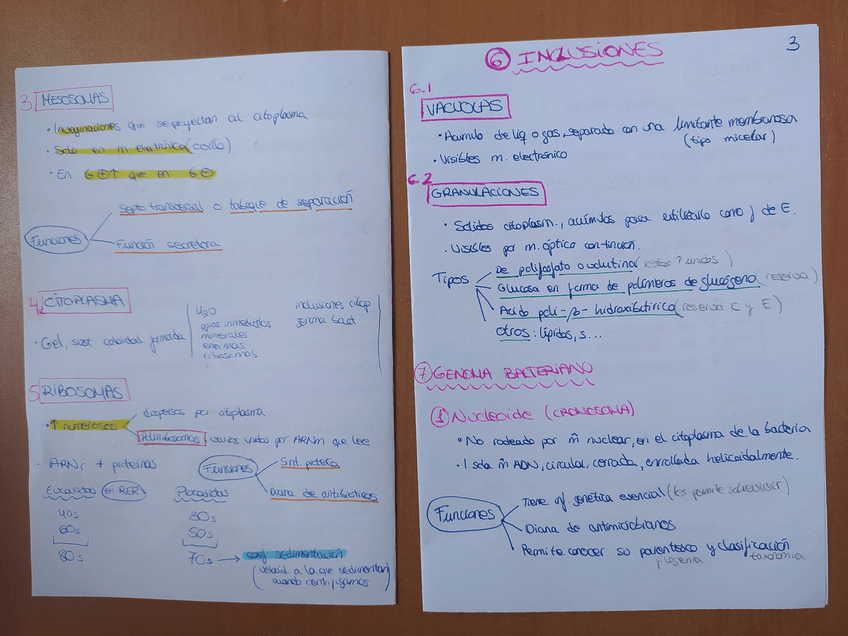 3 MESOSOMAS
· Invaginaciones que se proyectan al citoplasma
· Solo en m electrónico (anillo)
· En G⊕↑ que en G⊖
Septo transversal o tabique de separación
Funciones
Función secretora
4 CITOPLASMA
· Gel, sust coloidal formada
H2O
minerales
enzimas
ribosomas
inclusiones citop
genoma bact
5 RIBOSOMAS
· ↑ numerosos
dispersos por citoplasma
Polirribosomas varios unidos por ARNm que lee
· ARNr + proteínas
Funciones
Sint. proteica
Diana de antibióticos
Eucariotas en RER
Procariotas
40s
30s
60s
50s
80s
70s → coef sedimentación
(velocid a la que sedimentan
cuando centrifugamos)
3
6 INCLUSIONES
6.1
VACUOLAS
· Acúmulo de líq o gas, separado con una limitante membranosa
(tipo micelar)
· Visibles m. electrónico
6.2
GRANULACIONES
· Sólidos citoplasm., acúmulos para utilizarlo como f de E.
· Visibles por m. óptico con tinción.
Tipos
De polifosfato o volutina (restos ? unidos)
Glucosa en forma de polímeros de glucógeno (reserva)
Ácido poli-β-hidroxibutírico (reserva C y E)
Otros: lípidos, s...
7 GENOMA BACTERIANO
1 Nucleoide (CROMOSOMA)
· No rodeado por m nuclear, en el citoplasma de la bacteria
· 1 sola m ADN, circular, cerrada, enrollada helicoidalmente.
Funciones
Tiene inf genética esencial (les permite sobrevivir)
Diana de antimicrobianos
Permite conocer su parentesco y clasificación
filogenia
taxonomía